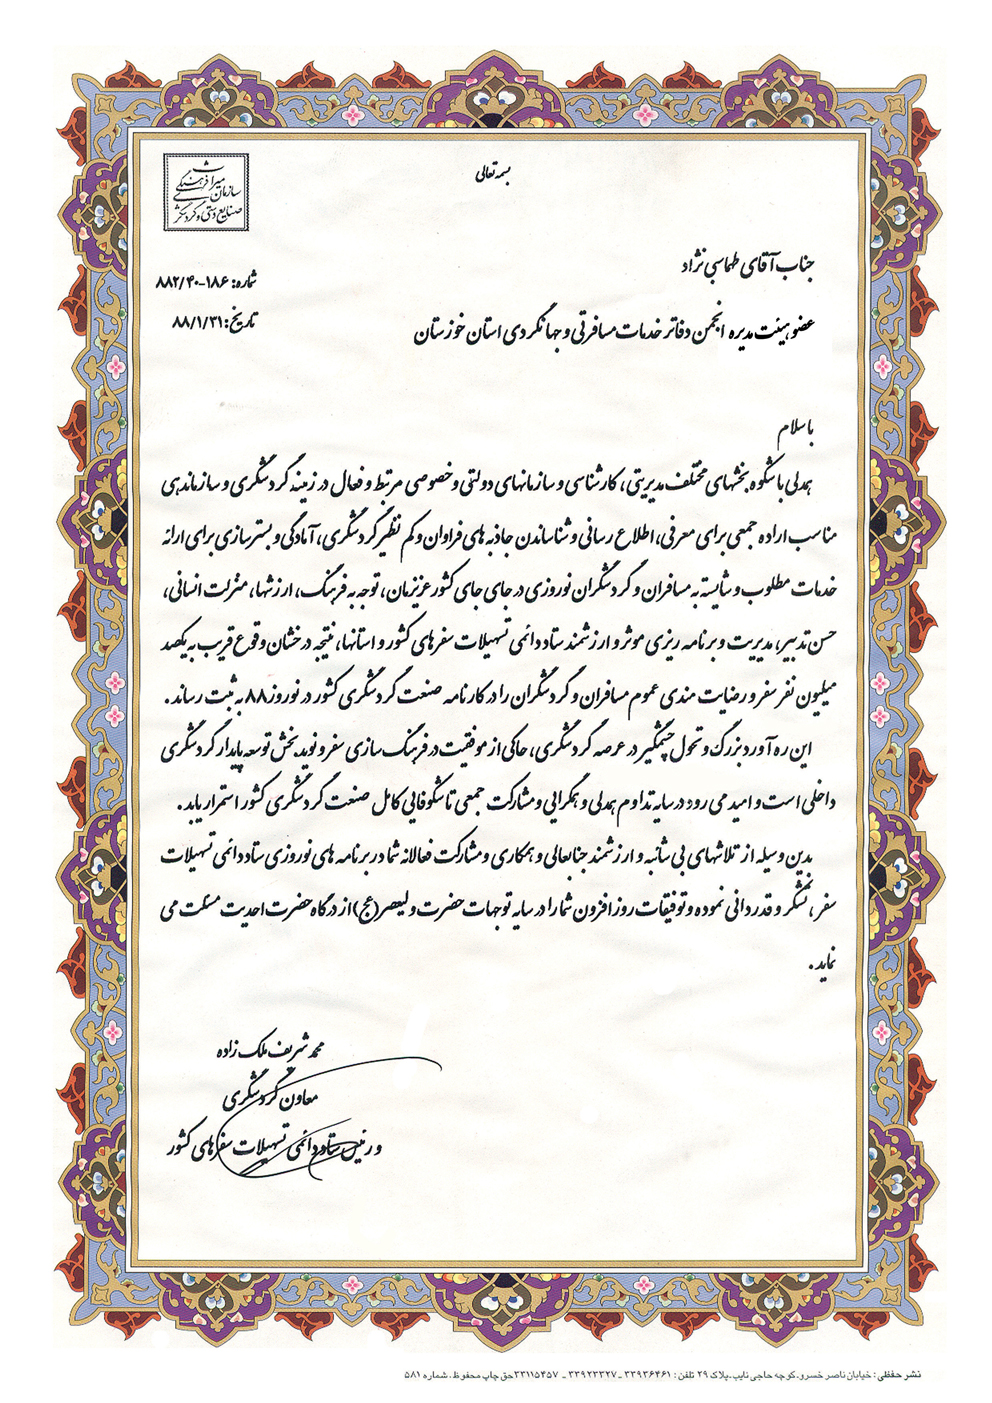 بسمه تعالی
سازمان میراث فرهنگی
صنایع دستی و گردشگری
شماره: ۱۸۶-۸۸۲/۴۰
تاریخ: ۸۸/۱/۳۱
جناب آقای طهماسبی نژاد
عضو هیئت مدیره انجمن دفاتر خدمات مسافرتی و جهانگردی استان خوزستان
با سلام
همدلی باشکوه بخشهای مختلف مدیریتی، کارشناسی و سازمانهای دولتی و خصوصی مرتبط و فعال در زمینه گردشگری و سازماندهی
مناسب اراده جمعی برای معرفی، اطلاع رسانی و شناساندن جاذبه های فراوان و کم نظیر گردشگری، آمادگی و بسترسازی برای ارائه
خدمات مطلوب و شایسته به مسافران و گردشگران نوروزی در جای جای کشور عزیزمان، توجه به فرهنگ، ارزشها، منزلت انسانی،
حسن تدبیر، مدیریت و برنامه ریزی موثر و ارزشمند ستاد دائمی تسهیلات سفرهای کشور و استانها، نتیجه درخشان وقوع قریب به یکصد
میلیون نفر سفر و رضایت مندی عموم مسافران و گردشگران را در کارنامه صنعت گردشگری کشور در نوروز ۸۸ به ثبت رساند.
این ره آورد بزرگ و تحول چشمگیر در عرصه گردشگری، حاکی از موفقیت در فرهنگ سازی سفر و نوید بخش توسعه پایدار گردشگری
داخلی است و امید می رود در سایه تداوم همدلی و همگرایی و مشارکت جمعی تا شکوفایی کامل صنعت گردشگری کشور استمرار یابد.
بدین وسیله از تلاشهای بی شائبه و ارزشمند جنابعالی و همکاری و مشارکت فعالانه شما در برنامه های نوروزی ستاد دائمی تسهیلات
سفر، تشکر و قدردانی نموده و توفیقات روز افزون شما را در سایه توجهات حضرت ولیعصر (عج) از درگاه حضرت احدیت مسئلت می
نماید.
محمد شریف ملک زاده
معاون گردشگری
و رئیس ستاد دائمی تسهیلات سفرهای کشور
نشر حفظی: خیابان ناصر خسرو.کوچه حاجی نایب.پلاک ۲۹ تلفن: ۳۳۹۳۶۴۶۱ـ۳۳۹۲۳۳۲۷ـ ۳۳۱۱۵۴۵۷حق چاپ محفوظ. شماره ۵۸۱